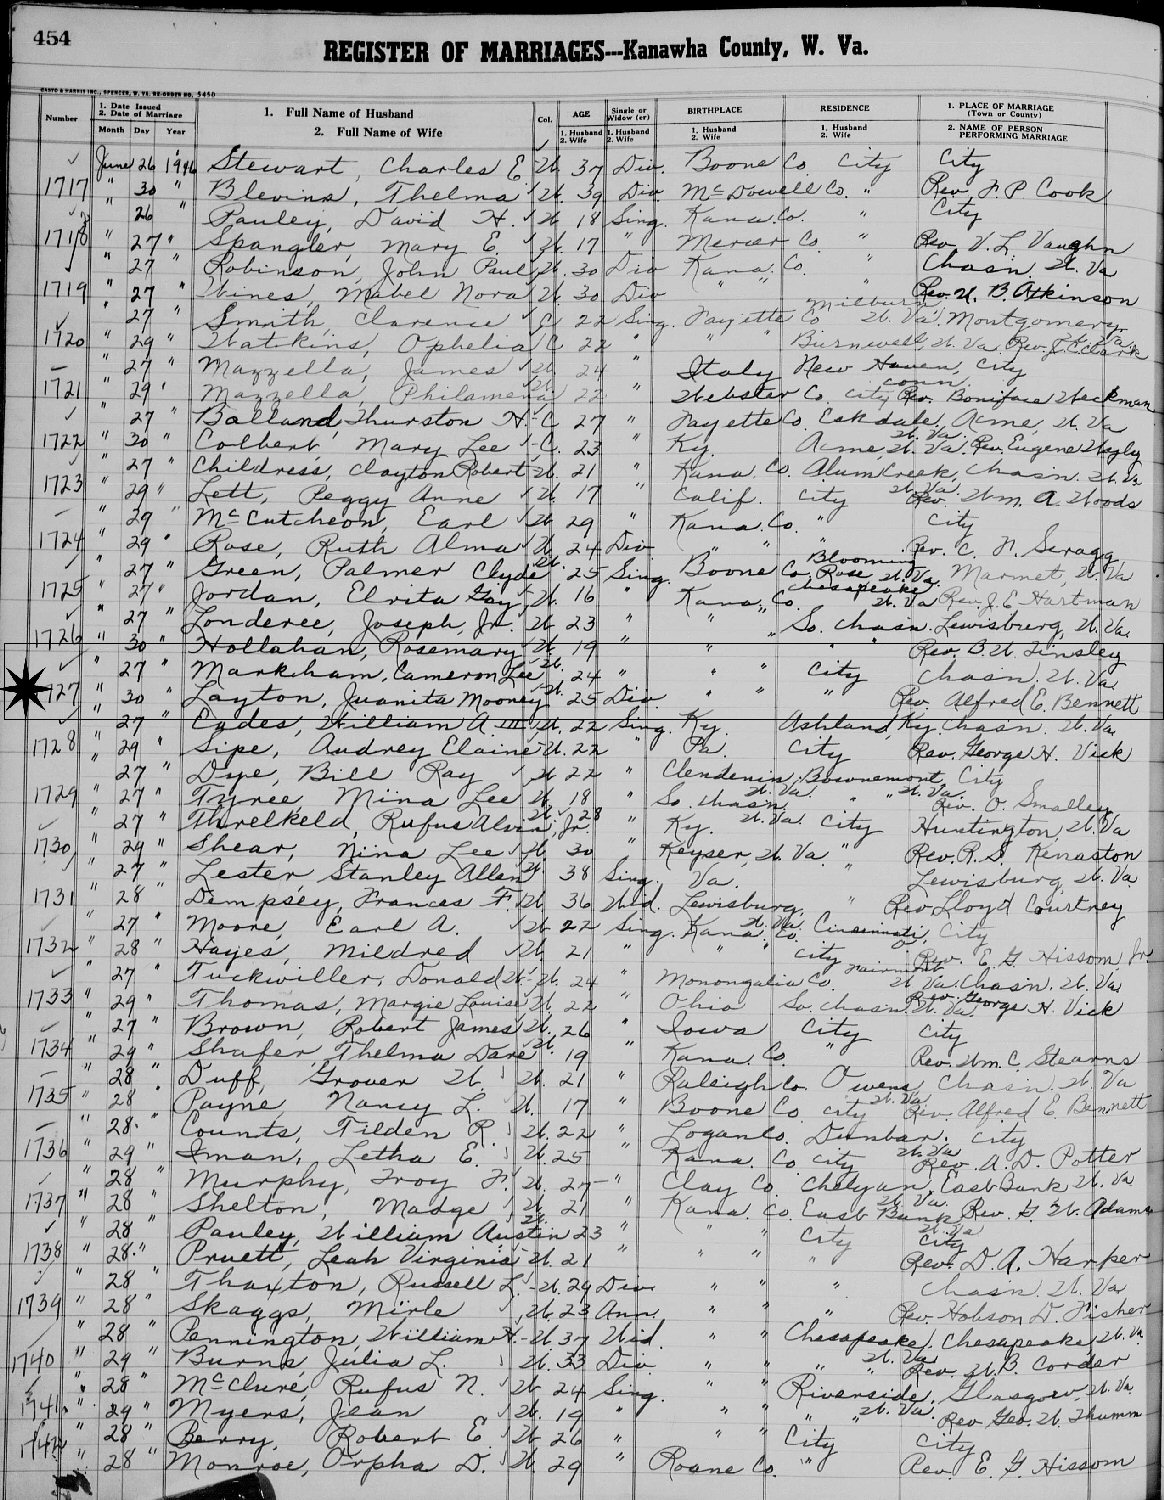 454
REGISTER OF MARRIAGES---Kanawha County, W. Va.
CASTO & HARRIS INC., SPENCER, W. VA. RE-ORDER NO. 5450
Number 1. Date Issued 2. Date of Marriage Month Day Year 1. Full Name of Husband 2. Full Name of Wife Col. AGE 1. Husband 2. Wife Single or Widow (er) 1. Husband 2. Wife BIRTHPLACE 1. Husband 2. Wife RESIDENCE 1. Husband 2. Wife 1. PLACE OF MARRIAGE (Town or County) 2. NAME OF PERSON PERFORMING MARRIAGE
June 26 1946 Stewart, Charles E W. 37 Div. Boone Co City City
1717 " 30 " Blevins, Thelma W. 39 Div. McDowell Co. " Rev. F. P. Cook
" 26 Pauley, David H. W 18 Sing. Kana. Co. " City
1718 " 27 " Spangler, Mary E. W. 17 " Mercer Co. " Rev. V. L. Vaughn
" 27 " Robinson, John Paul W. 30 Div Kana. Co. " Chasn. W. Va
1719 " 27 " Wines, Mabel Nora W. 30 Div " " " Rev. W. B. Atkinson
" 27 " Smith, Clarence C 22 Sing. Fayette Co Milburn, W. Va. Montgomery, W. Va.
1720 " 29 " Watkins, Ophelia C 22 " " " Burnwell, W. Va. Rev. J. C. Clark
" 27 " Mazzella, James W. 24 Italy New Haven, Conn. City
1721 " 29 " Mazzella, Philamena W. 22 " Webster Co. City Rev. Boniface Weckman
" 27 " Balland, Thurston H. C 27 " Fayette Co. Eskdale, W. Va. Acme, W. Va
1722 " 30 " Colbert, Mary Lee C. 23 " Ky. Acme, W. Va. Rev. Eugene Wagley
" 27 " Childress, Clayton Robert W. 21 " Kana. Co. Alum Creek, W. Va. Chasn. W. Va.
1723 " 29 " Lett, Peggy Anne W. 17 " Calif. City Rev. Wm. A. Woods
" 29 " McCutcheon, Earl W. 29 " Kana. Co. " City
1724 " 29 " Rose, Ruth Alma W. 24 Div " " " Rev. C. N. Scragg
" 27 " Green, Palmer Clyde W. 25 Sing. Boone Co. Blooming Rose, W. Va. Marmet, W. Va
1725 " 27 " Jordan, Elvita Gay W. 16 " Kana. Co. Chesapeake, W. Va Rev. J. E. Hartman
" 27 " Londeree, Joseph, Jr. W. 23 " " " So. Chasn. Lewisburg, W. Va.
1726 " 30 " Hollahan, Rosemary W. 19 " " " " Rev. B. W. Tinsley
" 27 " Markham, Cameron Lee W. 24 " " " City Chasn. W. Va.
1727 " 30 " Layton, Juanita Mooney W. 25 Div " " " Rev. Alfred E. Bennett
" 27 " Eades, William A. III W. 22 Sing. Ky. Ashland, Ky. Chasn. W. Va
1728 " 29 " Sipe, Audrey Elaine W. 22 " Pa. City Rev. George H. Vick
" 27 " Dye, Bill Ray W. 22 " Clendenin, W. Va. Bownemont, W. Va. City
1729 " 27 " Tyree, Mina Lee W. 18 " So. Chasn. W. Va. " " Rev. O. Smalley
" 27 " Threlkeld, Rufus Alvin, Jr. W. 28 " Ky. City Huntington, W. Va
1730 " 29 " Shear, Nina Lee W. 30 Keyser, W. Va. " Rev. R. S. Kenaston
" 27 " Lester, Stanley Allen W. 38 Sing. Va. " Lewisburg, W. Va.
1731 " 28 " Dempsey, Frances F. W. 36 Wid. Lewisburg, W. Va. " Rev. Lloyd Courtney
" 27 " Moore, Earl A. W 22 Sing. Kana. Co. Cincinnati, O City
1732 " 28 " Hayes, Mildred W. 21 " " " City Rev. E. G. Hissom, Jr
" 27 " Tuckwiller, Donald W. W. 24 " Monongalia Co. Fairmont, W. Va. Chasn. W. Va
1733 " 29 " Thomas, Margie Louise W. 22 " Ohio So. Chasn. W. Va. Rev. George H. Vick
" 27 " Brown, Robert James W. 26 " Iowa City City
1734 " 29 " Shafer, Thelma Dare W. 19 " Kana. Co. " Rev. Wm. C. Stearns
" 28 " Duff, Grover W. W. 21 " Raleigh Co. Owens, W. Va. Chasn. W. Va
1735 " 28 Payne, Nancy L. W. 17 " Boone Co City Rev. Alfred E. Bennett
" 28 " Counts, Tilden R. W. 22 " Logan Co. Dunbar, W. Va City
1736 " 29 " Iman, Letha E. W. 25 " Kana. Co. City Rev. A. D. Potter
" 28 " Murphy, Troy F. W. 27 " Clay Co. Chelyan, W. Va. East Bank, W. Va
1737 " 28 " Shelton, Madge W 21 " Kana. Co. East Bank, W. Va Rev. G. W. Adams
" 28 " Pauley, William Austin W. 23 " " " City City
1738 " 28 " Pruett, Leah Virginia W. 21 " " " Rev. D. A. Harper
" 28 " Thaxton, Russell L. W. 29 Div. " " " Chasn. W. Va
1739 " 28 " Skaggs, Mirle W. 23 Ann. " " " Rev. Hobson D. Fisher
" 28 " Pennington, William H. W. 37 Wid. " " Chesapeake, W. Va. Chesapeake, W. Va.
1740 " 29 " Burns, Julia L. W. 33 Div. " " " " Rev. W. B. Corder
" 28 " McClure, Rufus N. W. 24 Sing. " " Riverside, W. Va. Glasgow, W. Va.
1741 " 29 " Myers, Jean W. 19 " " " " " Rev. Geo. W. Thumm
" 28 " Berry, Robert E. W. 26 " " " City City
1742 " 28 " Monroe, Orpha D. W. 29 " Roane Co. " Rev. E. G. Hissom